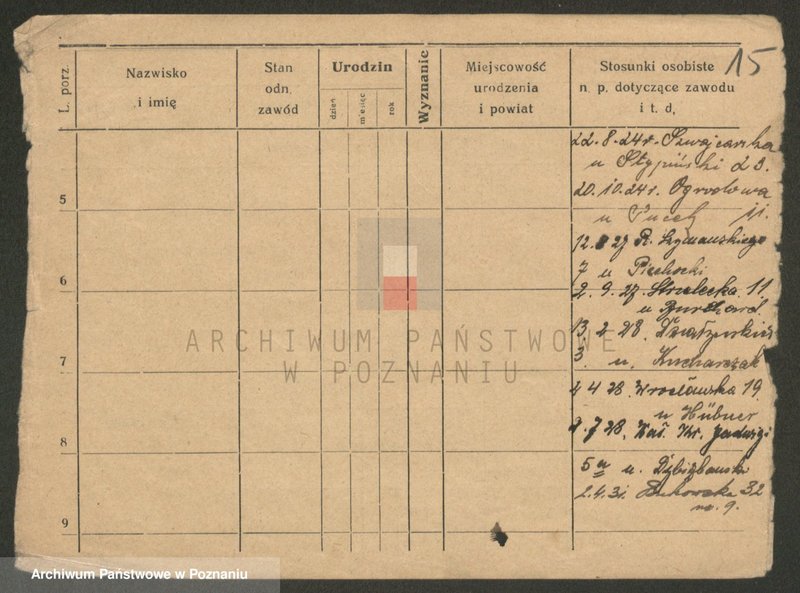 15
L. porz.
Nazwisko
i imię
Stan
odn.
zawód
Urodzin
dzień
miesiąc
rok
Wyznanie
Miejscowość
urodzenia
i powiat
Stosunki osobiste
n. p. dotyczące zawodu
i t. d.
22.8.24r. Szwajcarska
u Stypiński 23.
5
20.10.24r. Ogrodowa
u 11.
12.8 27 R. Szymańskiego
7 u
6
2.9.27 Strzelecka 11
u Burchard.
13.2 28.
ARCHIWUM PAŃSTWOWE
W POZNANIU
3. u. Kucharczak
7
4 4 28. Wrocławska 19.
u Hübner
9.7 28. Kr. Jadwigi
8
5a u.
2.4.31. 32
m. 9.
9
Archiwum Państwowe w Poznaniu